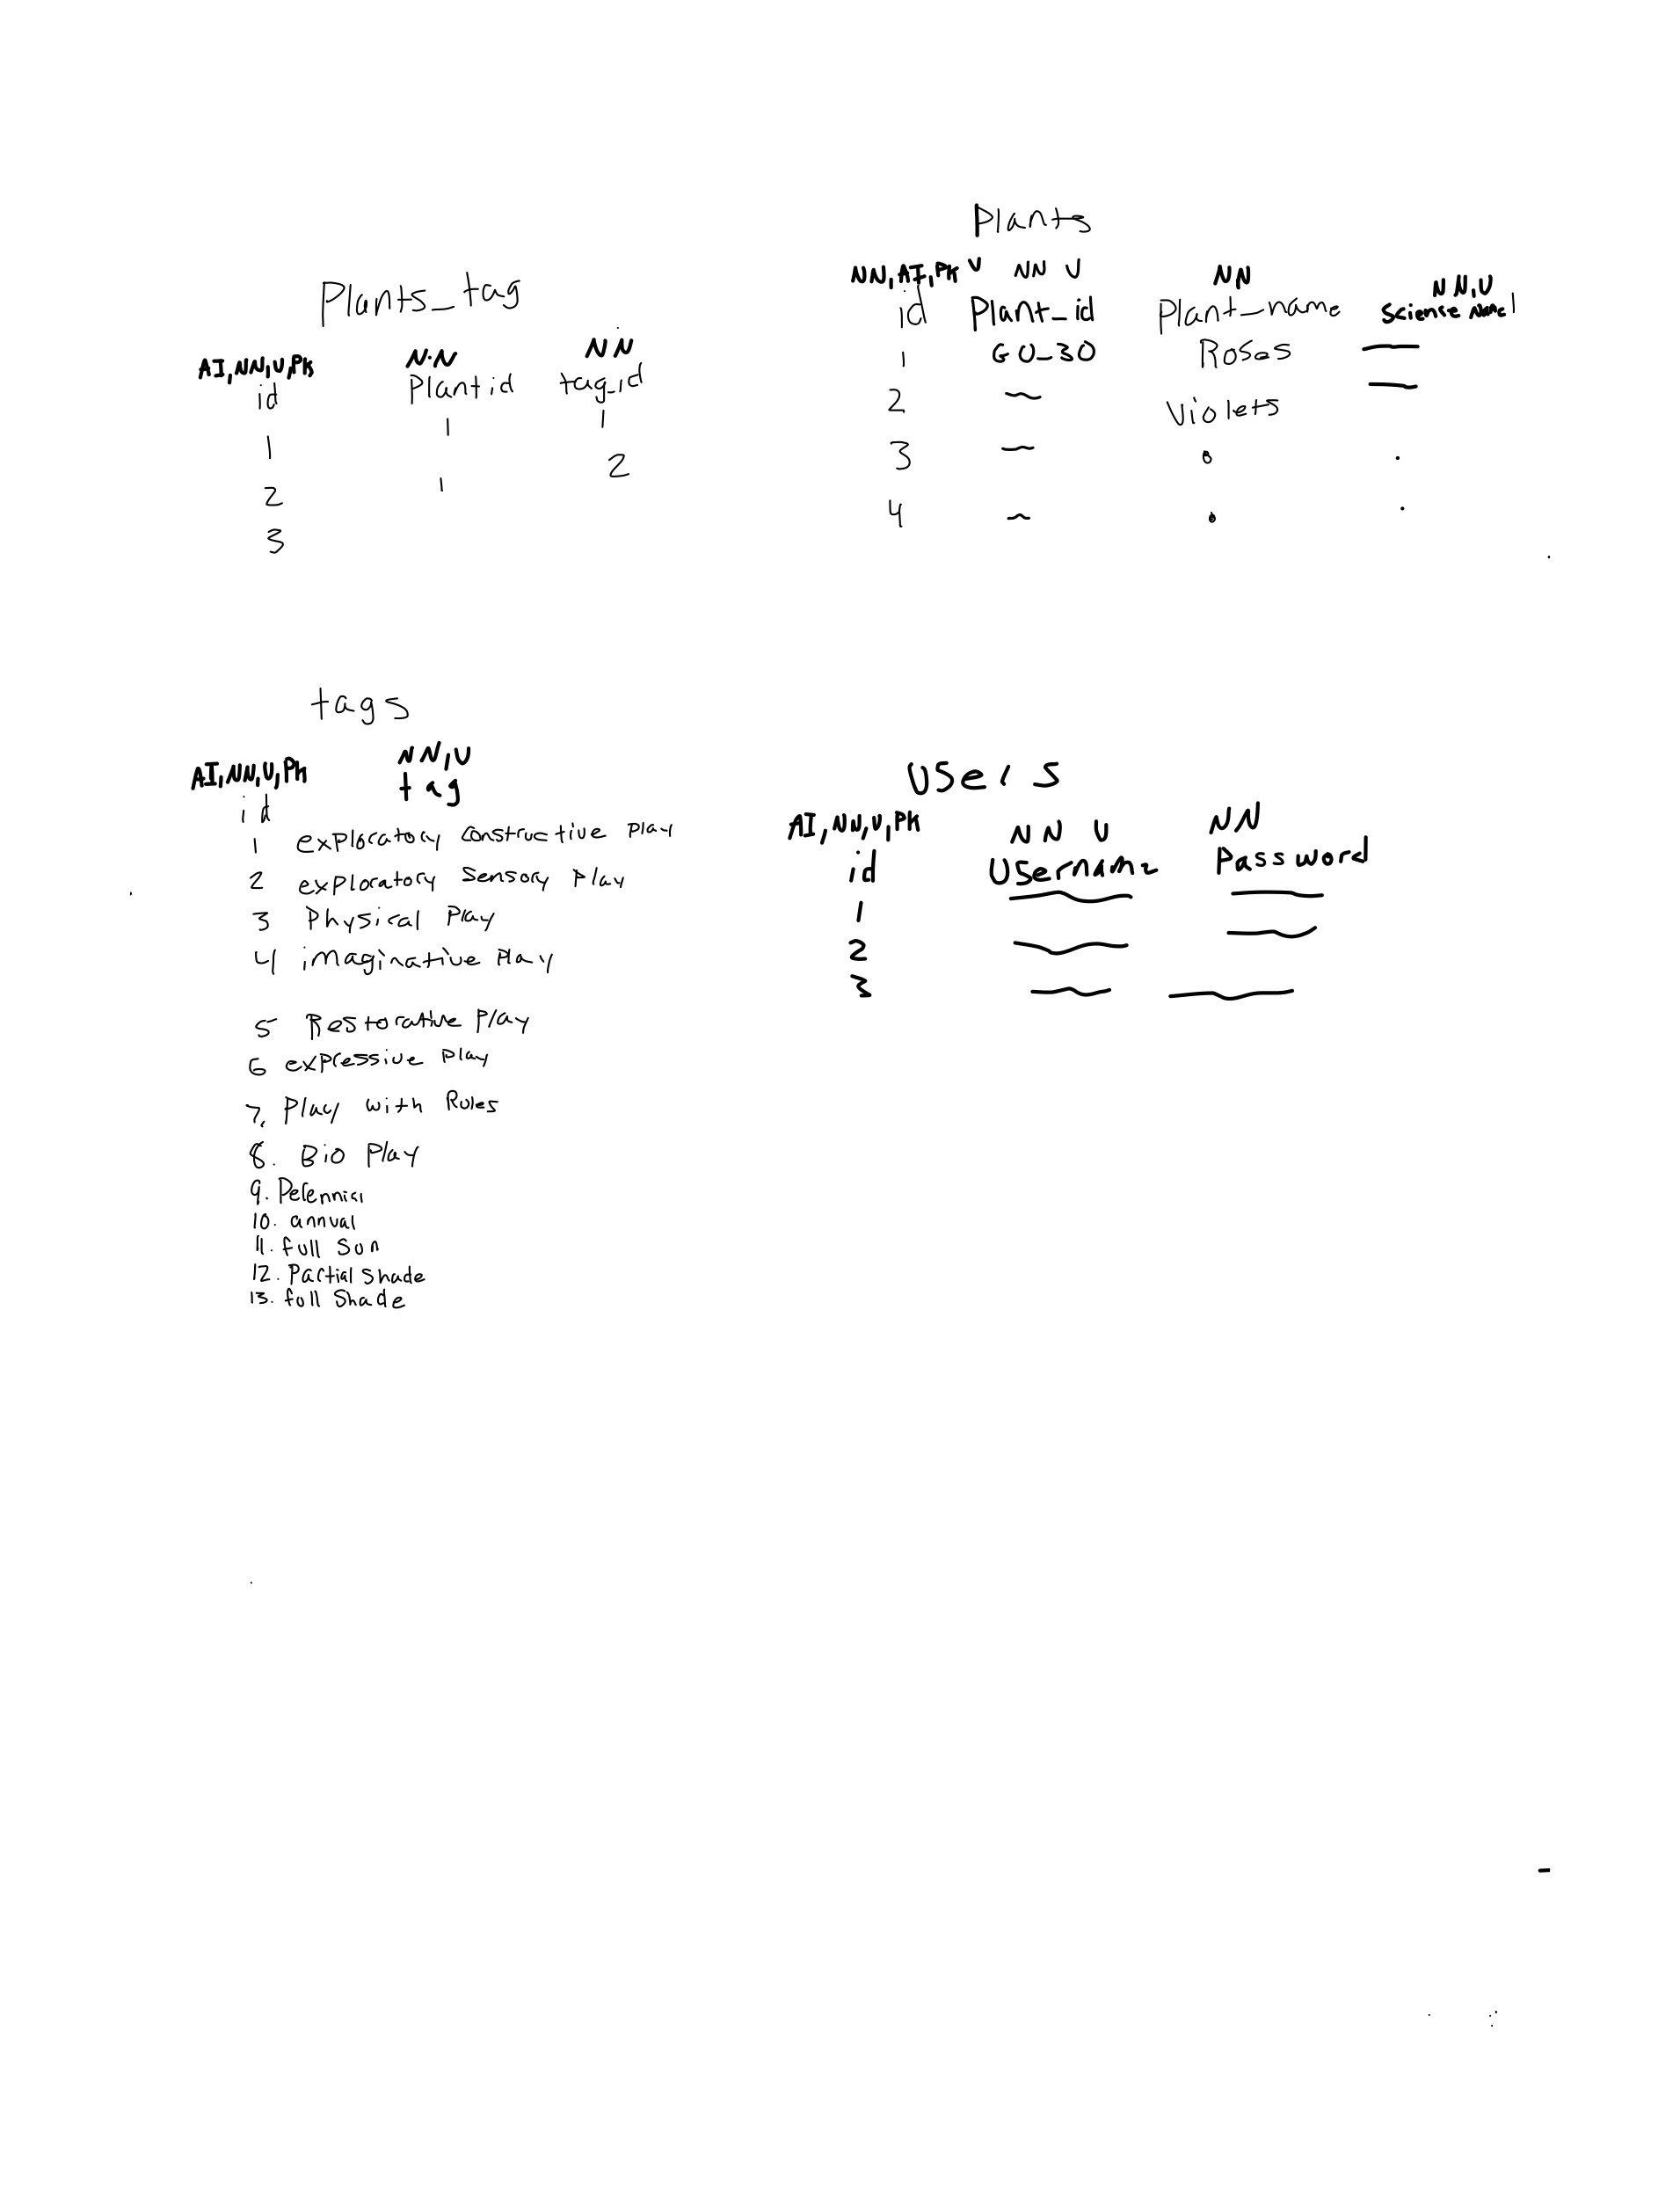 Plants_tag
AI,NN,U,PK NN NN
id Plantid tag_id
1 1 1
2 1 2
3
Plants
NN,AI,PK U NN U NN NN,U
id Plant_id Plant_name Science Name
1 GO_30 Roses
2 Violets
3
4
tags
AI,NN,U,PK NN,U
id tag
1 exploratory constructive play
2 exploratory sensory play
3 Physical Play
4 imaginative Play
5 Restorative Play
6 expressive play
7. Play with Rules
8. Bio Play
9. Perennial
10. annual
11. full Sun
12. Partial Shade
13. full Shade
Users
AI,NN,U,PK NN U NN
id Username Password
1
2
3